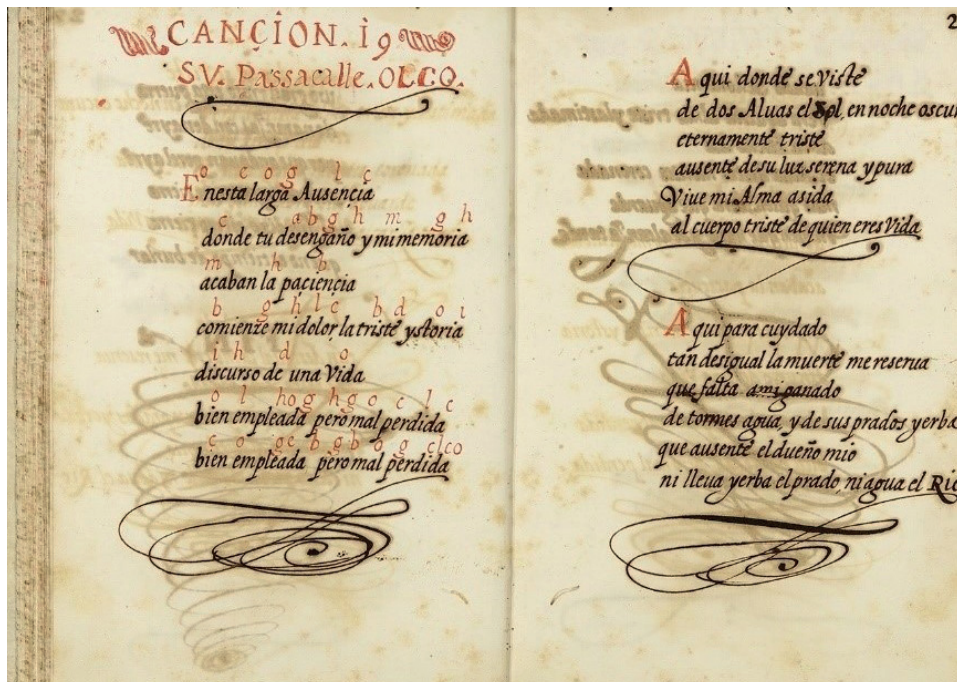 CANÇION. i9
SV. Passacalle. OLCO.
o c o g l ç
En esta larga Ausençia
c a b g h m g h
donde tu desengaño y mi memoria
m h b
acaban la paçiençia
b g h l ç b d o i
comienze mi dolor, la triste ystoria
i h d o
discurso de una Vida
o l h o g h g o c l c
bien empleada pero mal perdida
c o g c b g b o g c l c o
bien empleada pero mal perdida
2
Aqui donde se Viste
de dos Aluas el Sol, en noche oscur
eternamente triste
ausente de su luz serena y pura
Viue mi Alma asida
al cuerpo triste de quien eres Vida
Aqui para cuydado
tan desigual la muerte me reserua
que falta a mi ganado
de tormes agua, y de sus prados yerba
que ausente el dueño mio
ni lleua yerba el prado, ni agua el Rio